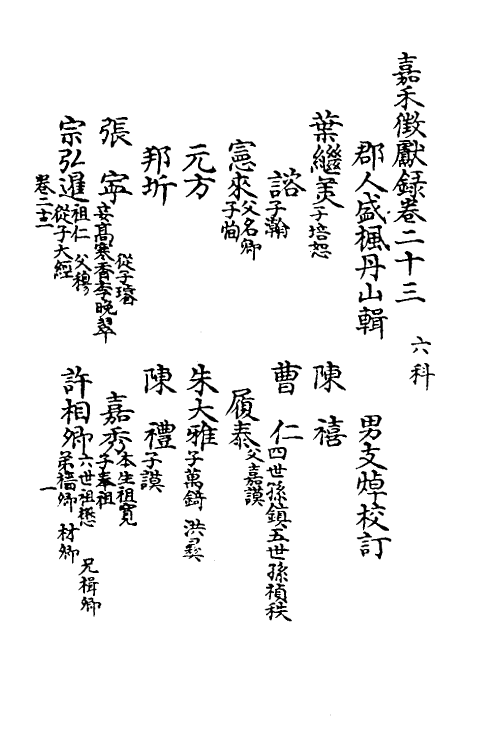 嘉禾徵獻録卷二十三
六科
郡人盛楓丹山輯
男支焯校訂
葉繼美子培恕
陳禧
諮子瀚
曹仁四世孫鎮五世孫禎秩
憲來父名卿子恂
履泰父嘉謨
元方
朱大雅子萬錡 洪彞
邦圻
陳禮子謨
張寧從子璿 安髙寒香李晚翠
嘉秀本生祖寛子奉祖
宗弘暹祖仁 父穆 從子大經
許相卿六世祖懋 兄楫卿 弟穡卿 材卿
卷二十三
一